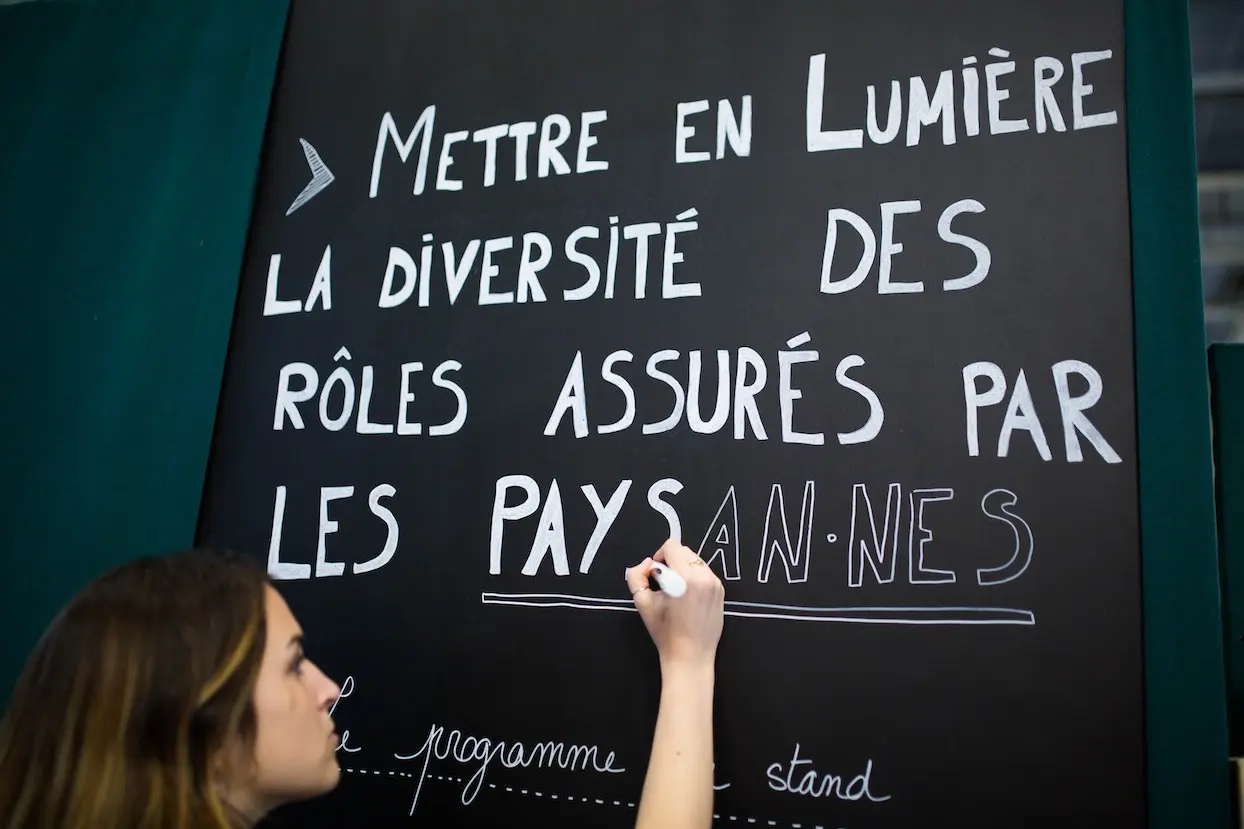 > METTRE EN LUMIÈRE
LA DIVERSITÉ DES
RÔLES ASSURÉS PAR
LES PAYSAN·NES
programme stand